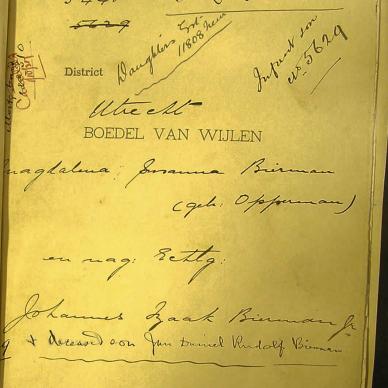 5629
Daughters Est
11808
Infant son
No. 5629
District
Utrecht
BOEDEL VAN WIJLEN
Magdalena Susanna Bierman
(geb: Opperman)
en nag: Echtg:
Johannes Izaak Bierman Jr
+ deceased son Jan Daniel Rudolf Bierman